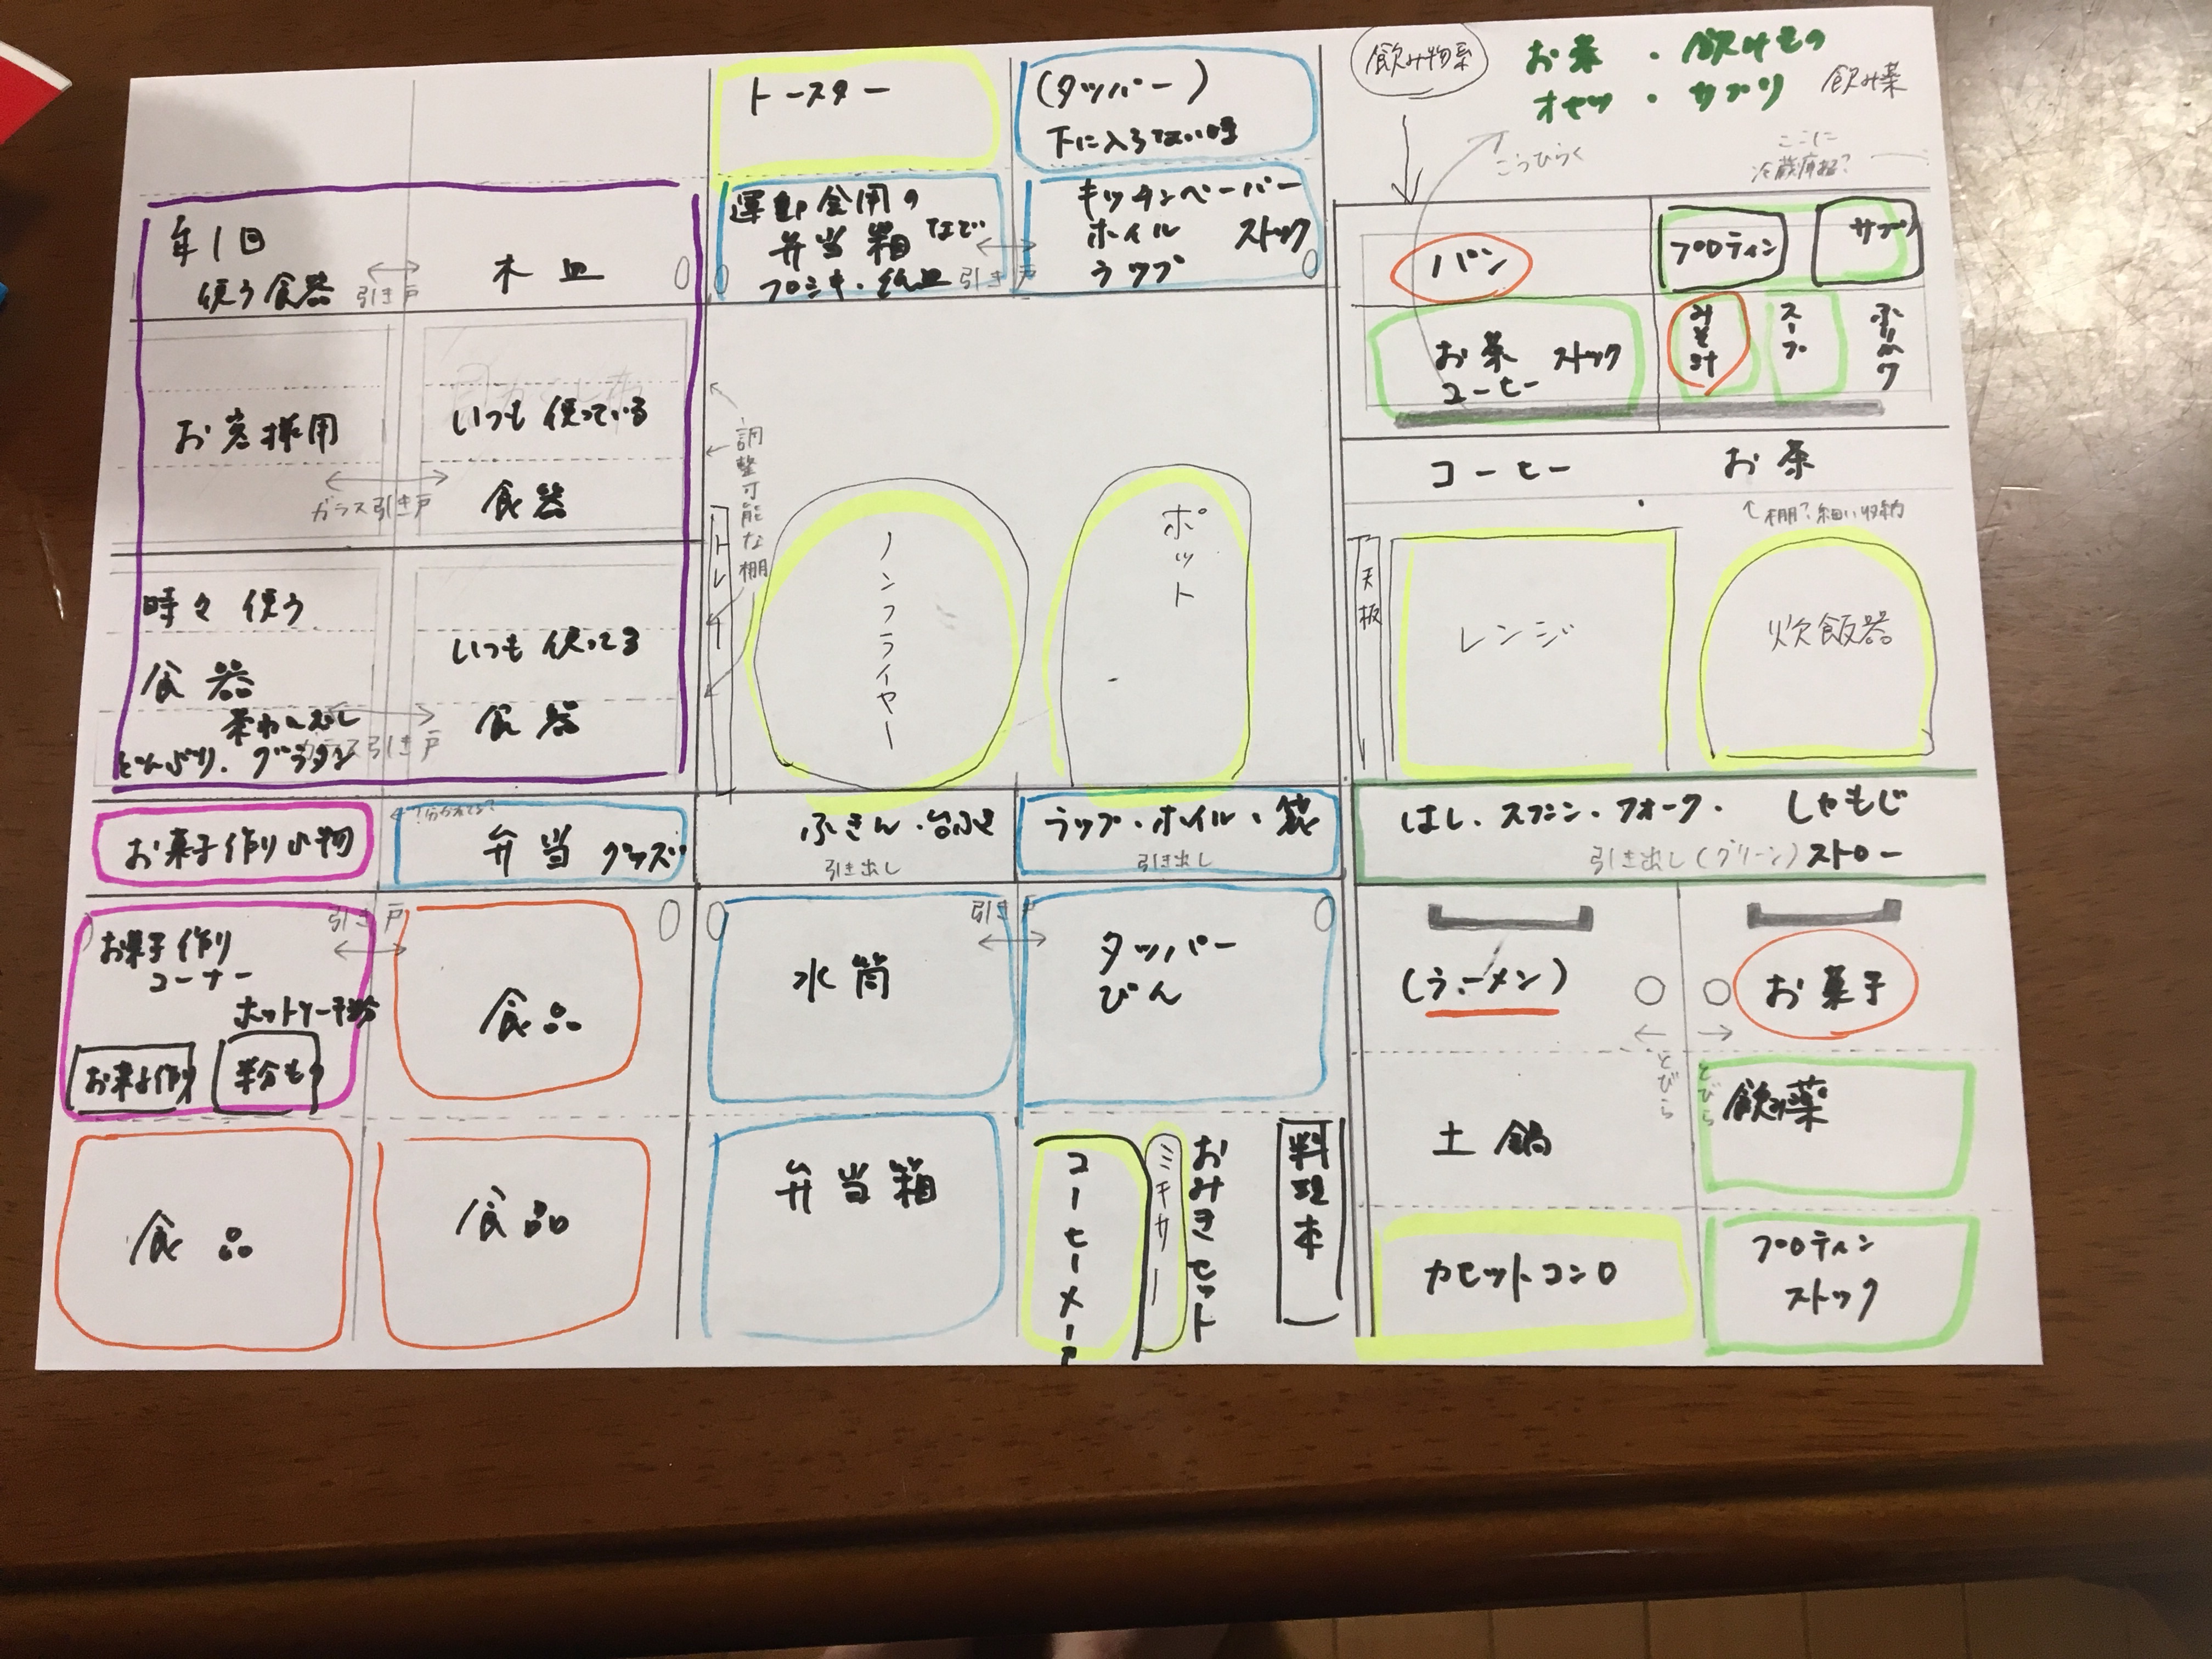 トースター
(タッパー)
下に入らない時
運動会用の
弁当箱 など
引き戸
キッチンペーパー
ホイル ストック
ラップ
年1回
使う食器
引き戸
木皿
お客様用
いつも使っている
食器
ガラス引き戸
時々使う
食器
茶わんむし
どんぶり、グラタン
引き戸
いつも使ってる
食器
調整可能な棚
トレー
ノンフライヤー
ポット
飲み物系
お茶・飲みもの
オヤツ・サプリ
飲み薬
こっひらく
ここに
パン
プロティン
サプリ
お茶 ストック
コーヒー
みそ汁
スープ
コーヒー お茶
↑棚?細い収納
天板
レンジ
炊飯器
お菓子作り小物
弁当グッズ
ふきん・台ふき
引き出し
ラップ・ホイル・袋
引き出し
はし・スプーン・フォーク・ しゃもじ
引き出し(グリーン) ストロー
お菓子作り
コーナー
お菓子作り
引き戸
食品
食品
食品
水筒
引き戸
タッパー
びん
弁当箱
コーヒーメーカー
ミキサー
おみきセット
料理本
(ラーメン)
お菓子
とびら
とびら
土鍋
飲み薬
カセットコンロ
プロティン
ストック